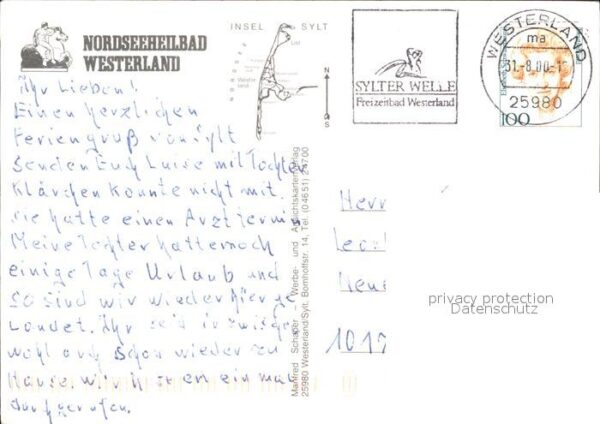 NORDSEEHEILBAD
WESTERLAND
INSEL SYLT
List
Westerland
N
S
SYLTER WELLE
Freizeitbad Westerland
WESTERLAND
ma
31.-8.00-1
25980
100
Ihr Lieben!
Einen herzlichen
Feriengruß von Sylt
senden Euch Luise mit Tochter
Klärchen konnte nicht mit.
sie hatte einen Arzttermin
Meine Tochter hatte noch
einige Tage Urlaub und
so sind wir wieder hier ge
landet. Ihr seid inzwisch
wohl auch schon wieder zu
Hause.
durchgerufen.
Manfred Schäfer – Werbe- und Ansichtskartenverlag
25980 Westerland/Sylt, Bomhoffstr. 14, Tel. (04651) 24700
Herr
Leo
1017
privacy protection
Datenschutz